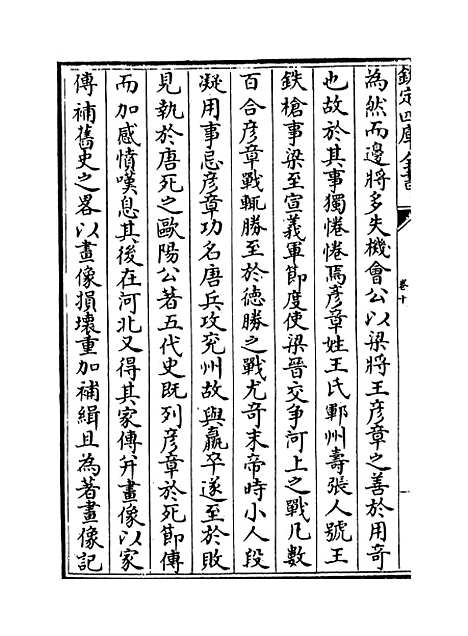 欽定四庫全書
卷十
為然而邊將多失機會公以梁將王彦章之善於用奇
也故於其事獨惓惓焉彦章姓王氏鄆州壽張人號王
鉄槍事梁至宣義軍節度使梁晉交爭河上之戰凡數
百合彦章戰輒勝至於德勝之戰尤奇末帝時小人段
凝用事忌彦章功名唐兵攻兖州故與羸卒遂至於敗
見執於唐死之歐陽公著五代史既列彦章於死節傳
而加感憤嘆息其後在河北又得其家傳并畫像以家
傳補舊史之畧以畫像損壞重加補緝且為著畫像記